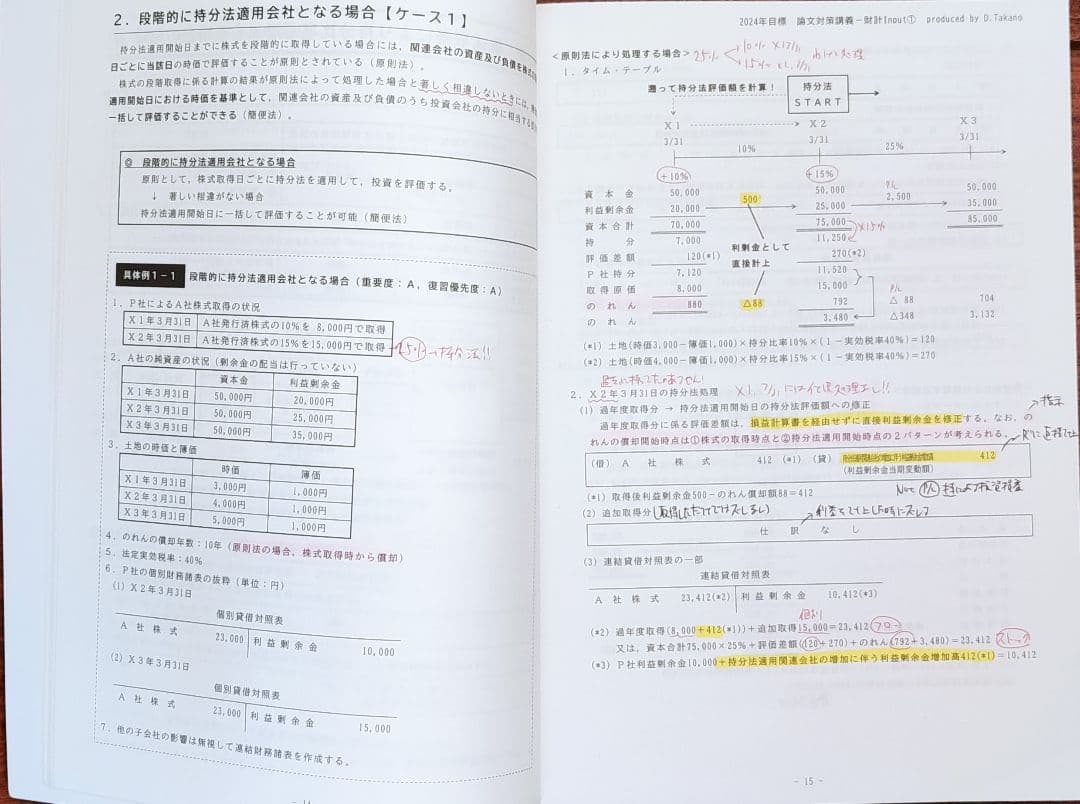 2．段階的に持分法適用会社となる場合【ケース１】
持分法適用開始日までに株式を段階的に取得している場合には，関連会社の資産及び負債を株式の
日ごとに当該日の時価で評価することが原則とされている（原則法）。
株式の段階取得に係る計算の結果が原則法によって処理した場合と著しく相違しないときには，
適用開始日における時価を基準として，関連会社の資産及び負債のうち投資会社の持分に相当する
一括して評価することができる（簡便法）。
◎ 段階的に持分法適用会社となる場合
原則として，株式取得日ごとに持分法を適用して，投資を評価する。
↓ 著しい相違がない場合
持分法適用開始日に一括して評価することが可能（簡便法）
具体例１－１ 段階的に持分法適用会社となる場合（重要度：Ａ，復習優先度：Ａ）
1．Ｐ社によるＡ社株式取得の状況
Ｘ１年３月31日 Ａ社発行済株式の10％を 8,000円で取得
Ｘ２年３月31日 Ａ社発行済株式の15％を15,000円で取得
2．Ａ社の純資産の状況（剰余金の配当は行っていない）
資本金 利益剰余金
Ｘ１年３月31日 50,000円 20,000円
Ｘ２年３月31日 50,000円 25,000円
Ｘ３年３月31日 50,000円 35,000円
3．土地の時価と簿価
時価 簿価
Ｘ１年３月31日 3,000円 1,000円
Ｘ２年３月31日 4,000円 1,000円
Ｘ３年３月31日 5,000円 1,000円
4．のれんの償却年数：10年（原則法の場合、株式取得時から償却）
5．法定実効税率：40％
6．Ｐ社の個別財務諸表の抜粋（単位：円）
(1) Ｘ２年３月31日
個別貸借対照表
Ａ 社 株 式 23,000 利 益 剰 余 金 10,000
(2) Ｘ３年３月31日
個別貸借対照表
Ａ 社 株 式 23,000 利 益 剰 余 金 15,000
7．他の子会社の影響は無視して連結財務諸表を作成する。
2024年目標 論文対策講義－財計Input① produced by D.Takano
＜原則法により処理する場合＞ 25%
1．タイム・テーブル
遡って持分法評価額を計算！ 持分法
ＳＴＡＲＴ
Ｘ１ Ｘ２ Ｘ３
3/31 10% 3/31 25% 3/31
+10% +15%
資 本 金 50,000 50,000 50,000
P/L
利益剰余金 20,000 500 25,000 2,500 35,000
資本合計 70,000 75,000 85,000
×15%
持 分 7,000 11,250
評価差額 120(*1) 利剰金として 270(*2)
Ｐ社持分 7,120 直接計上 11,520
取得原価 8,000 15,000 P/L
の れ ん 880 △88 792 △ 88 704
の れ ん 3,480 △348 3,132
(*1) 土地(時価3,000－簿価1,000)×持分比率10％×(１－実効税率40％)＝120
(*2) 土地(時価4,000－簿価1,000)×持分比率15％×(１－実効税率40％)＝270
2．Ｘ２年３月31日の持分法処理
(1) 過年度取得分 → 持分法適用開始日の持分法評価額への修正
指示
過年度取得分に係る評価差額は，損益計算書を経由せずに直接利益剰余金を修正する。なお，の
れんの償却開始時点は①株式の取得時点と②持分法適用開始時点の２パターンが考えられる。
(借) Ａ 社 株 式 412 (*1) (貸) 412
(利益剰余金当期変動額)
(*1) 取得後利益剰余金500－のれん償却額88＝412
(2) 追加取得分
仕 訳 な し
(3) 連結貸借対照表の一部
連結貸借対照表
Ａ 社 株 式 23,412(*2) 利 益 剰 余 金 10,412(*3)
個別
(*2) 過年度取得(8,000＋412(*1))＋追加取得15,000＝23,412 フロー
又は，資本合計75,000×25％＋評価差額(120＋270)＋のれん(792＋3,480)＝23,412 ストック
(*3) Ｐ社利益剰余金10,000＋持分法適用関連会社の増加に伴う利益剰余金増加高412(*1)＝10,412
－ 15 －